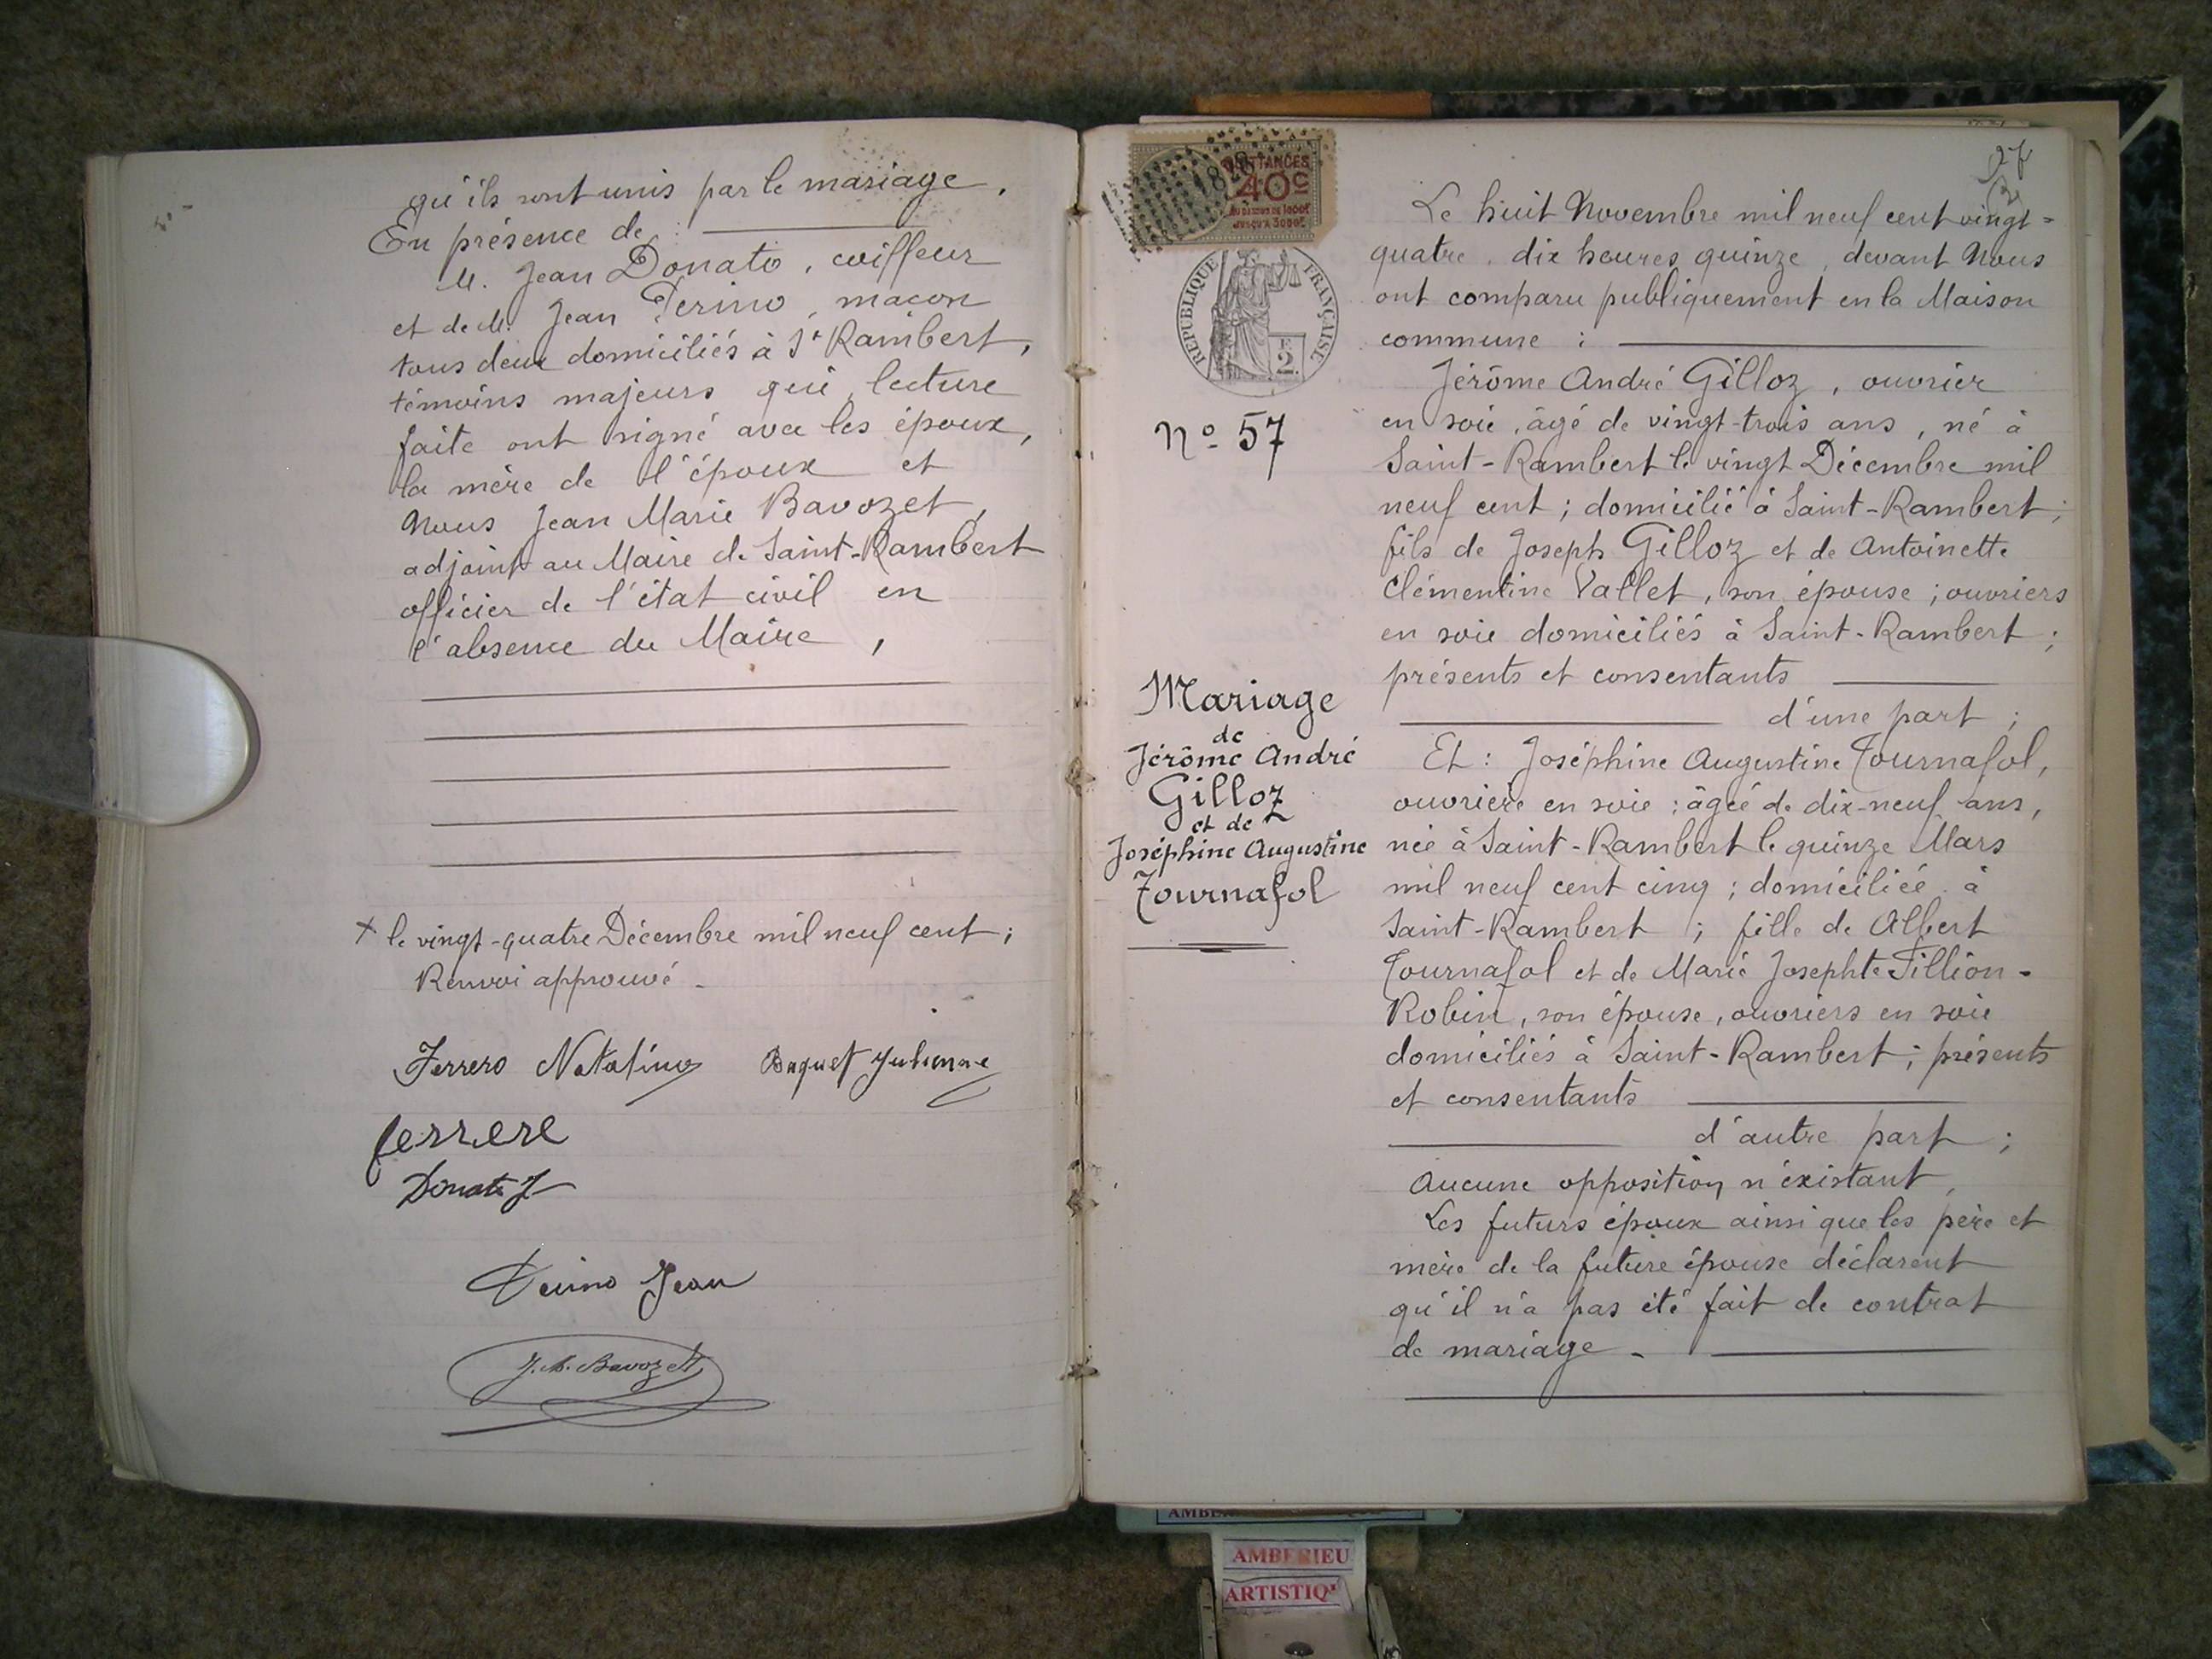 qu'ils sont unis par le mariage.
En présence de :
M. Jean Donato, coiffeur
et de M. Jean Perino, maçon
tous deux domiciliés à St Rambert,
témoins majeurs qui, lecture
faite ont signé avec les époux,
la mère de l'époux et
Nous Jean Marie Bavozet,
adjoint au Maire de Saint-Rambert
officier de l'état civil en
l'absence du Maire,
+ le vingt-quatre Décembre mil neuf cent;
Renvoi approuvé.
Ferrero Natalino Baquet Julienne
ferrere
Donato J
Perino Jean
J.M. Bavozet
QUITTANCES
40c
RÉPUBLIQUE FRANÇAISE
2
No 57
Mariage
de
Jérôme André
Gilloz
et de
Joséphine Augustine
Tournafol
27
Le huit Novembre mil neuf cent vingt-
quatre, dix heures quinze, devant Nous
ont comparu publiquement en la Maison
commune :
Jérôme André Gilloz, ouvrier
en soie, âgé de vingt-trois ans, né à
Saint-Rambert le vingt Décembre mil
neuf cent; domicilié à Saint-Rambert;
fils de Joseph Gilloz et de Antoinette
Clémentine Vallet, son épouse; ouvriers
en soie domiciliés à Saint-Rambert;
présents et consentants
d'une part;
Et : Joséphine Augustine Tournafol,
ouvrière en soie; âgée de dix-neuf ans,
née à Saint-Rambert le quinze Mars
mil neuf cent cinq; domiciliée à
Saint-Rambert; fille de Albert
Tournafol et de Marie Josephte Fillion-
Robin, son épouse, ouvriers en soie
domiciliés à Saint-Rambert; présents
et consentants
d'autre part;
Aucune opposition n'éxistant,
Les futurs époux ainsi que les père et
mère de la future épouse déclarent
qu'il n'a pas été fait de contrat
de mariage.
AMBERIEU
ARTISTIQ